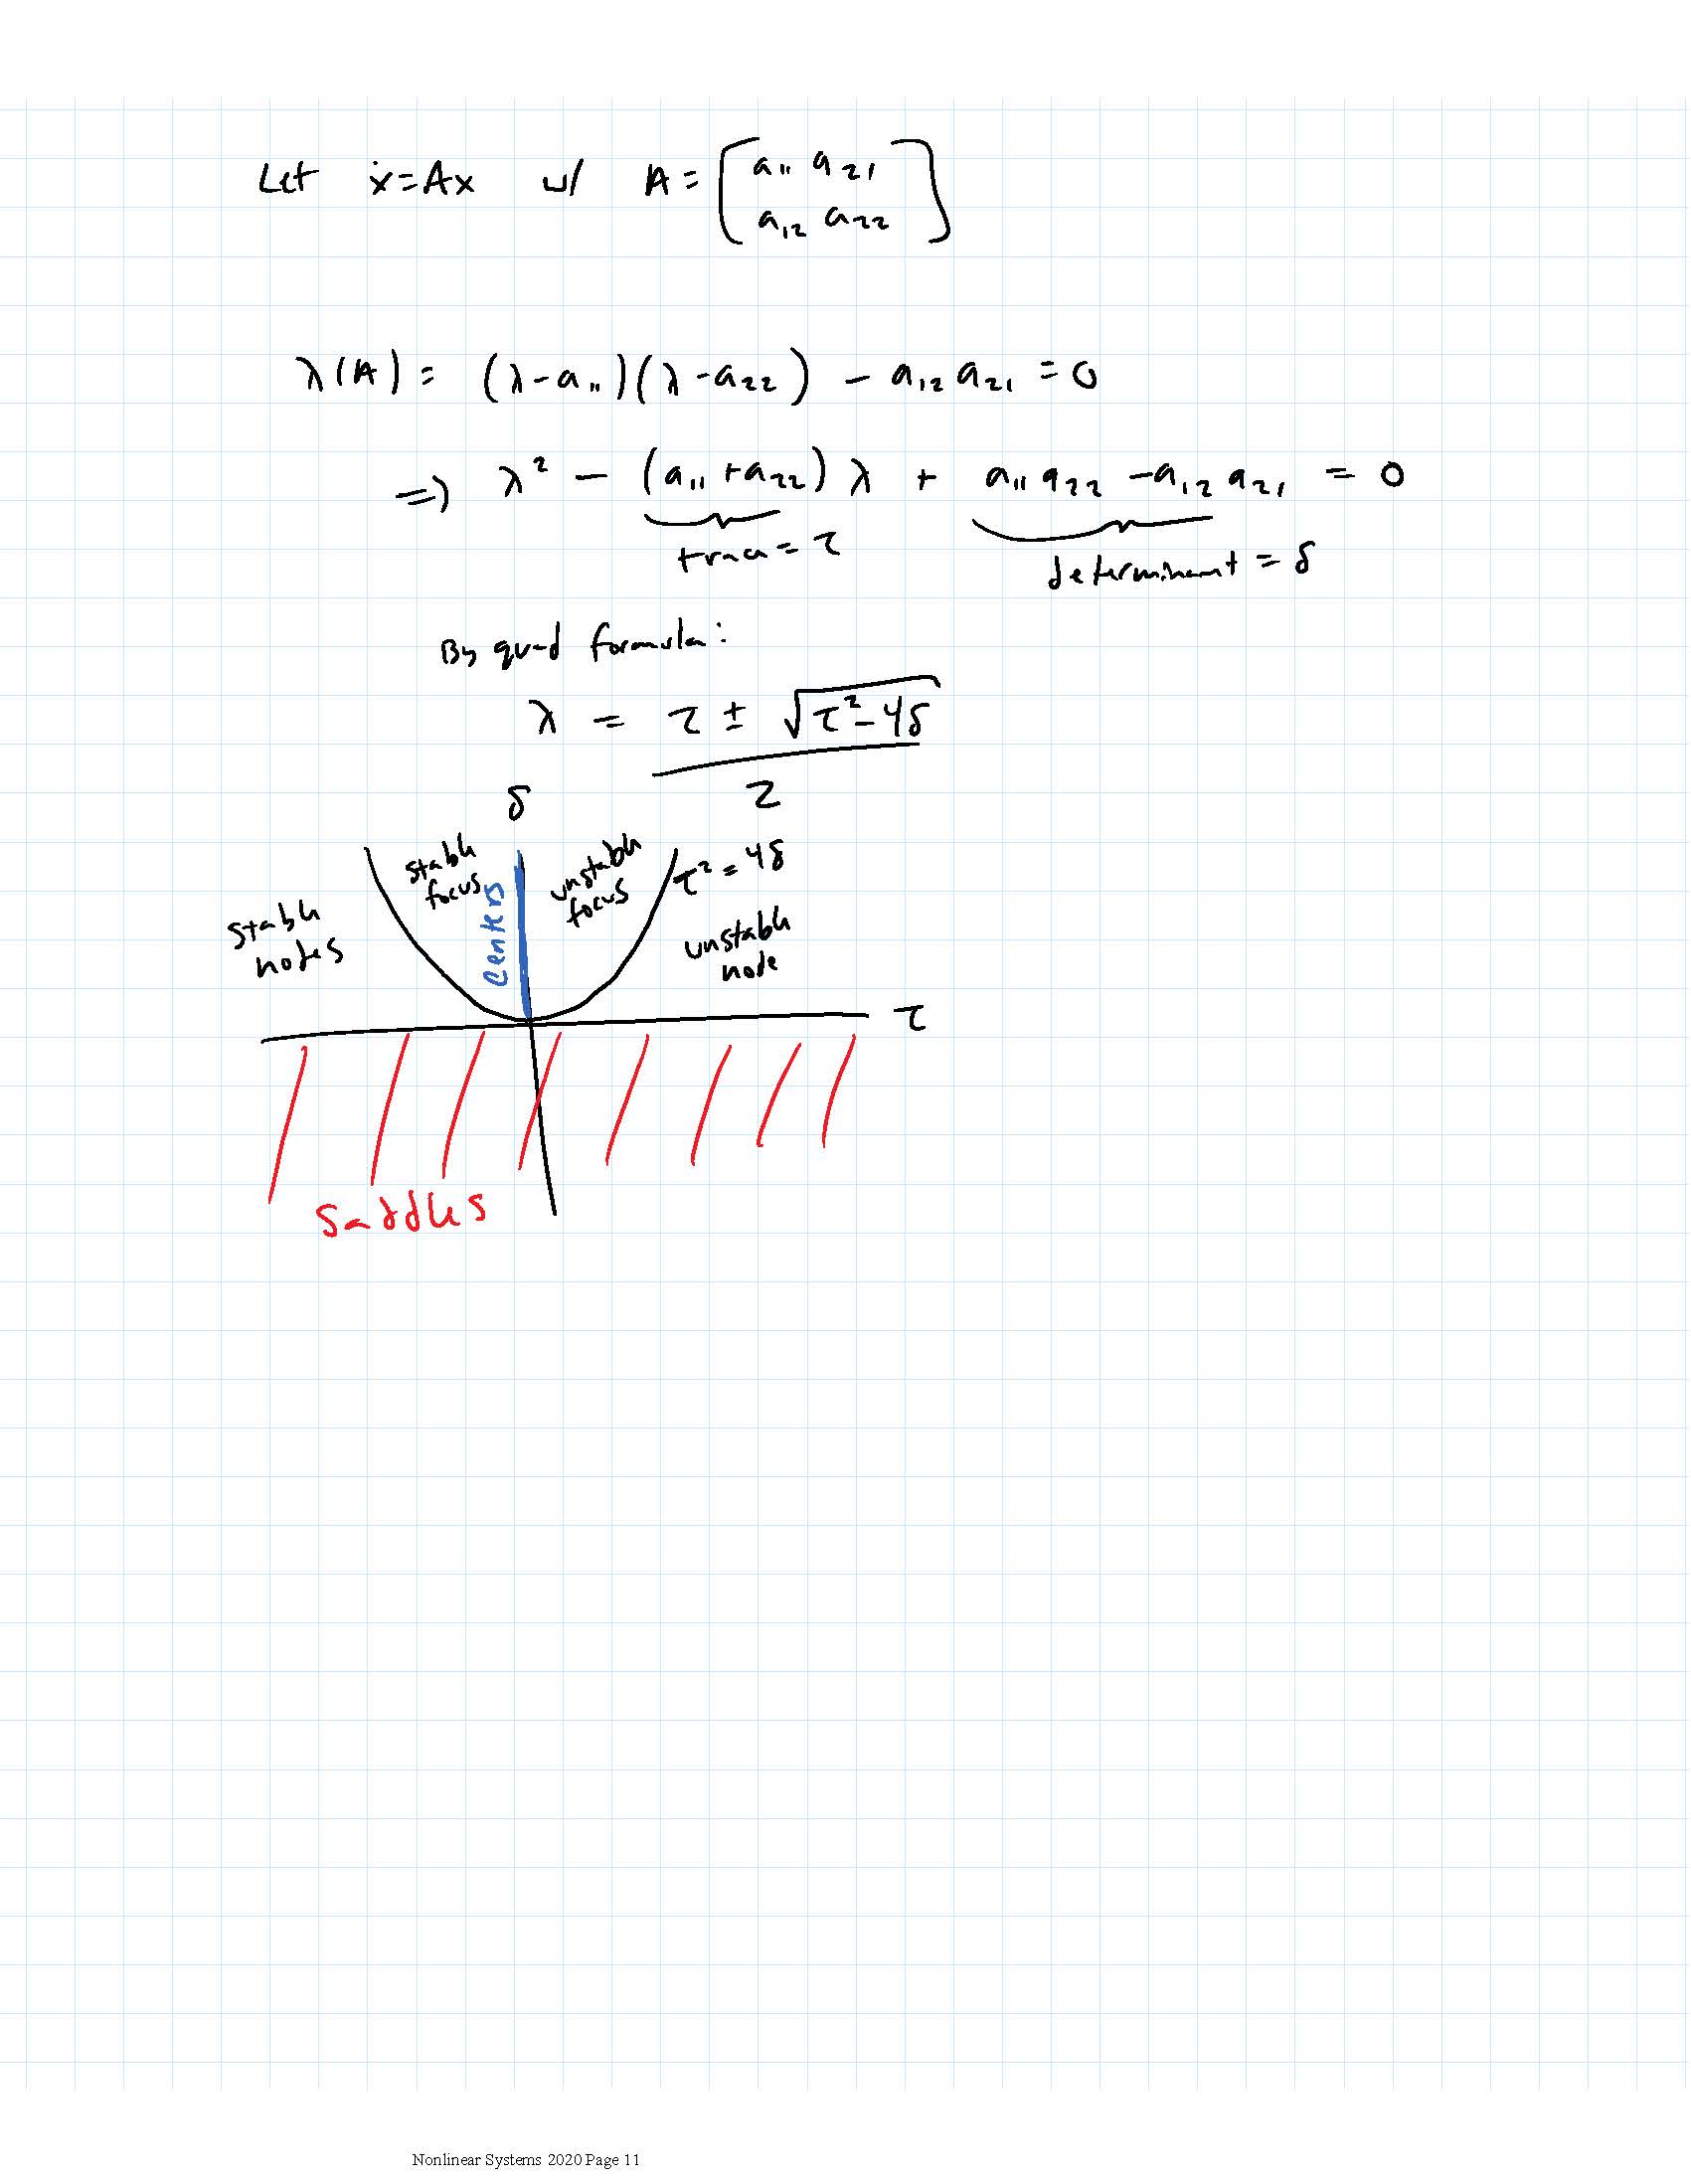 Let ẋ=Ax w/ A = [a₁₁ a₂₁
a₁₂ a₂₂]
λ(A) = (λ-a₁₁)(λ-a₂₂) - a₁₂a₂₁ = 0
=> λ² - (a₁₁+a₂₂)λ + a₁₁a₂₂ - a₁₂a₂₁ = 0
trace = τ
determinant = δ
By quad formula:
λ = τ ± √τ²-4δ
2
δ
stable
focus
centers
unstable
focus
τ² = 4δ
stable
nodes
unstable
node
τ
saddles
Nonlinear Systems 2020 Page 11